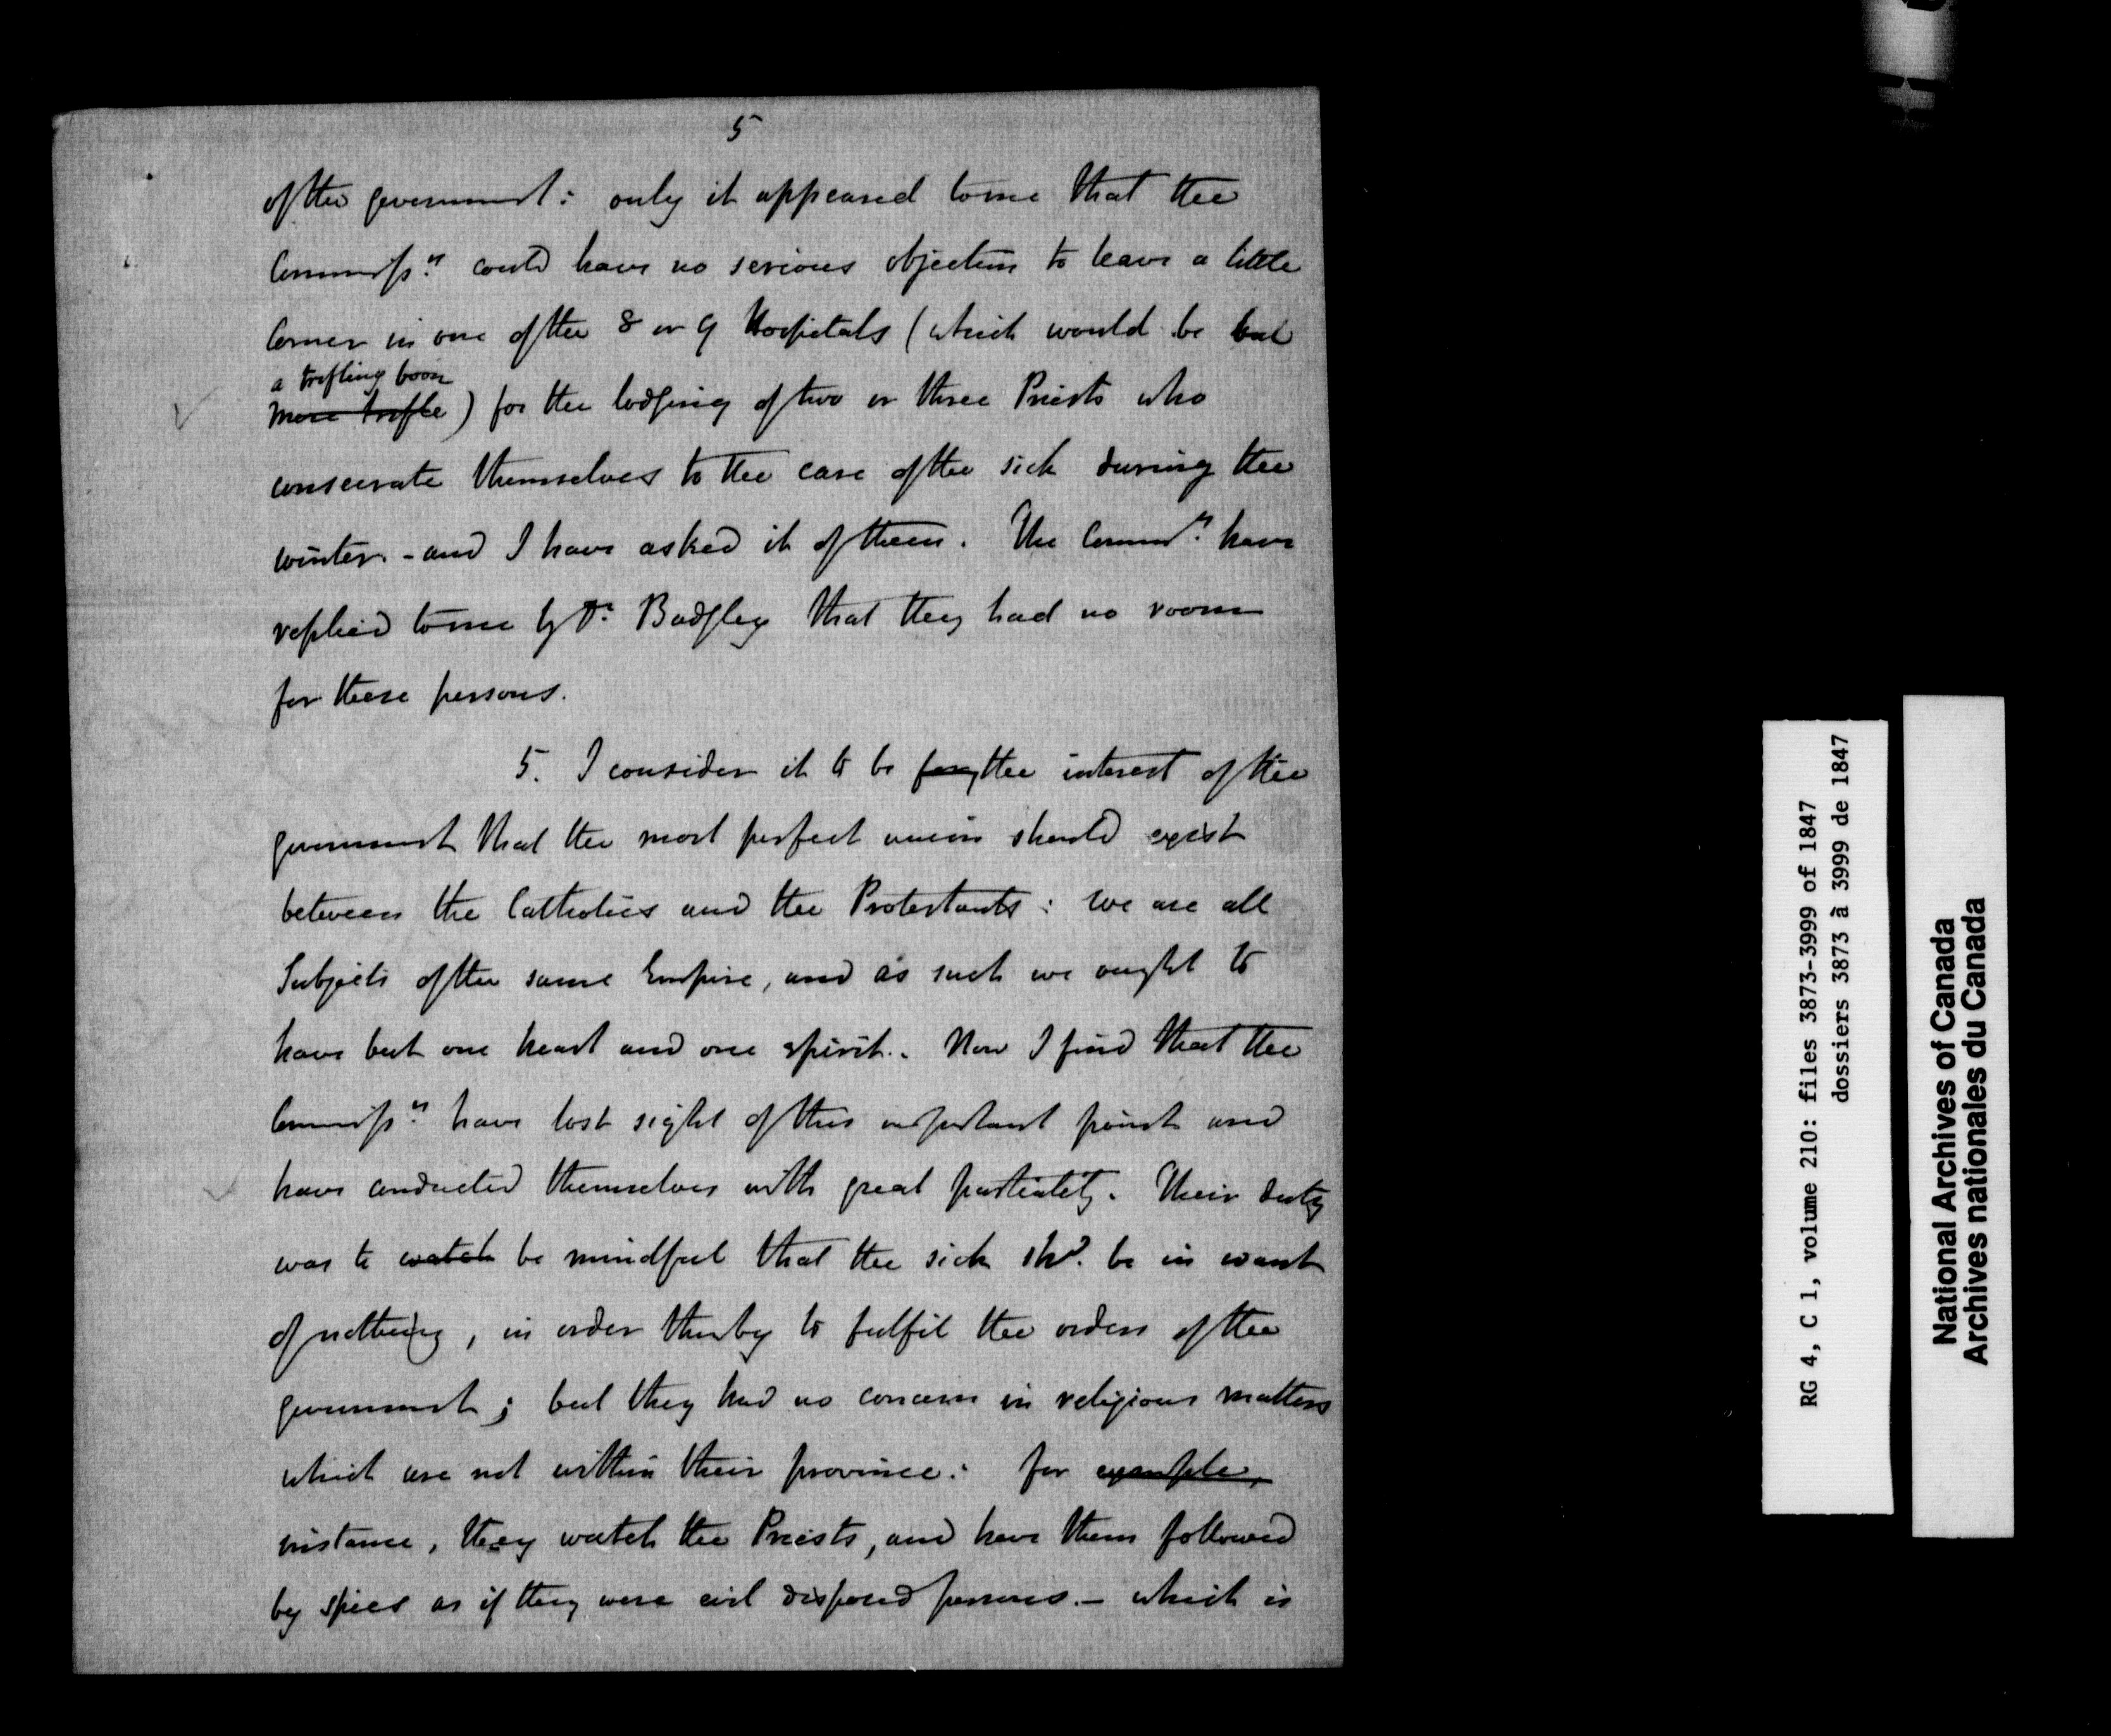 5
of the government: only it appeared to me that the
Commissrs could have no serious objection to leave a little
corner in one of the 8 or 9 Hospitals (which would be but
a trifling boon
mere trifle) for the lodging of two or three Priests who
consecrate themselves to the care of the sick during the
winter. - and I have asked it of them. The Commrs have
replied to me by Dr. Badgley that they had no room
for these persons.
5. I consider it to be the interest of the
government that the most perfect union should exist
between the Catholics and the Protestants: we are all
Subjects of the same Empire, and as such we ought to
have but one heart and one spirit. Now I find that the
Commissrs have lost sight of this important point and
have conducted themselves with great partiality. Their duty
was to watch be mindful that the sick shd. be in want
of nothing, in order thereby to fulfil the orders of the
government; but they had no concern in religious matters
which are not within their province: for example,
instance, they watch the Priests, and have them followed
by spies as if they were evil disposed persons. - which is
RG 4, C 1, volume 210: files 3873-3999 of 1847
dossiers 3873 à 3999 de 1847
National Archives of Canada
Archives nationales du Canada